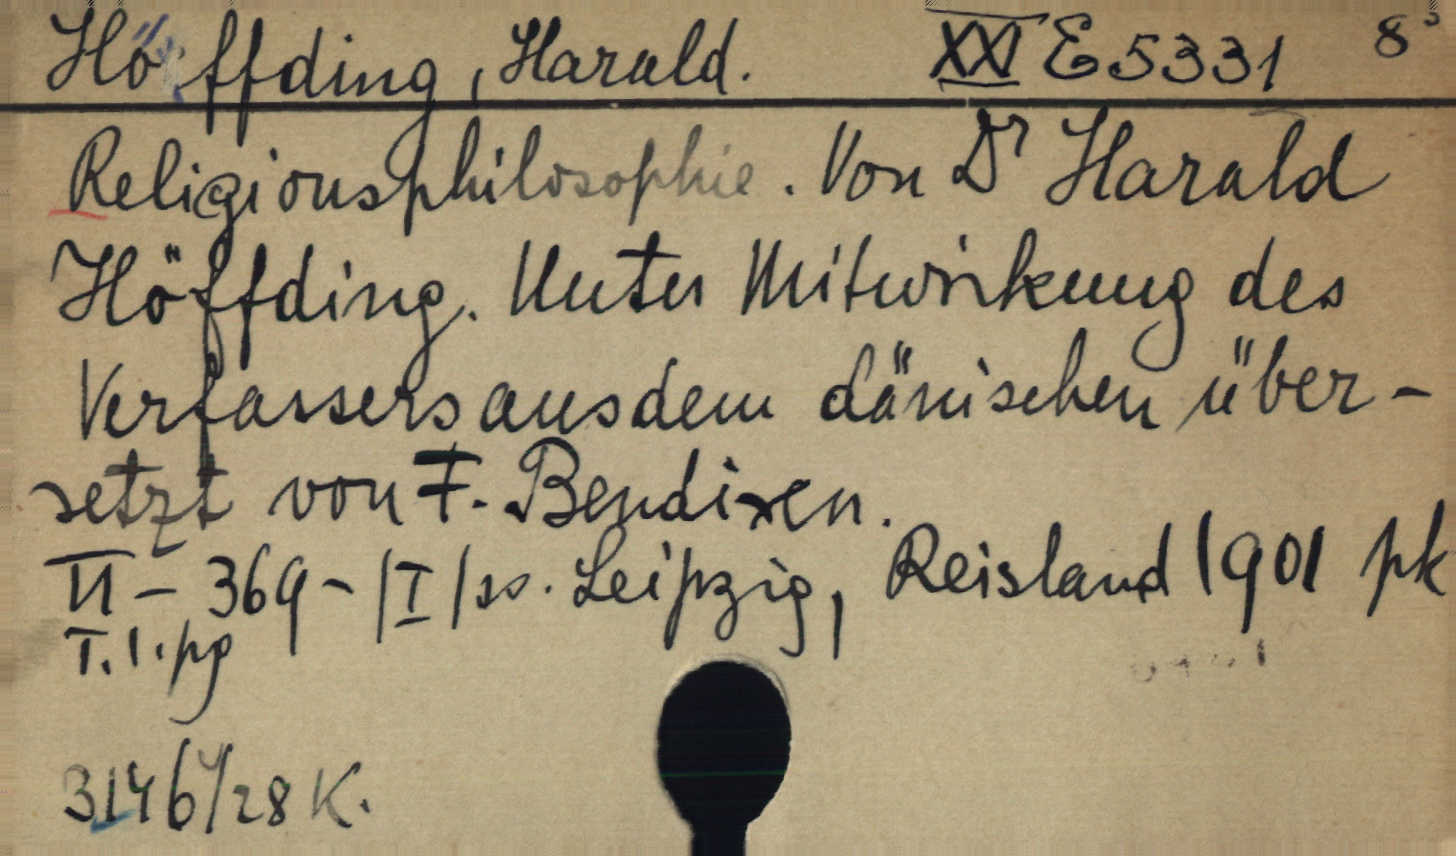 Höffding, Harald. XXI E 5331 8°
Religionsphilosophie. Von Dr Harald
Höffding. Unter Mitwirkung des
Verfassers aus dem dänischen über-
setzt von F. Bendixen.
VI - 369 - |I| ss. Leipzig, Reisland 1901 pk
T. 1. pg
3146/28 K.